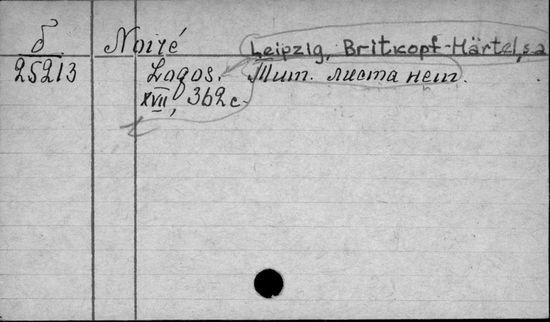 б Noiré Leipzig, Britkopf-Härtel, s.a
25213 Logos. Тит. листа нет.
XVII, 362 с.